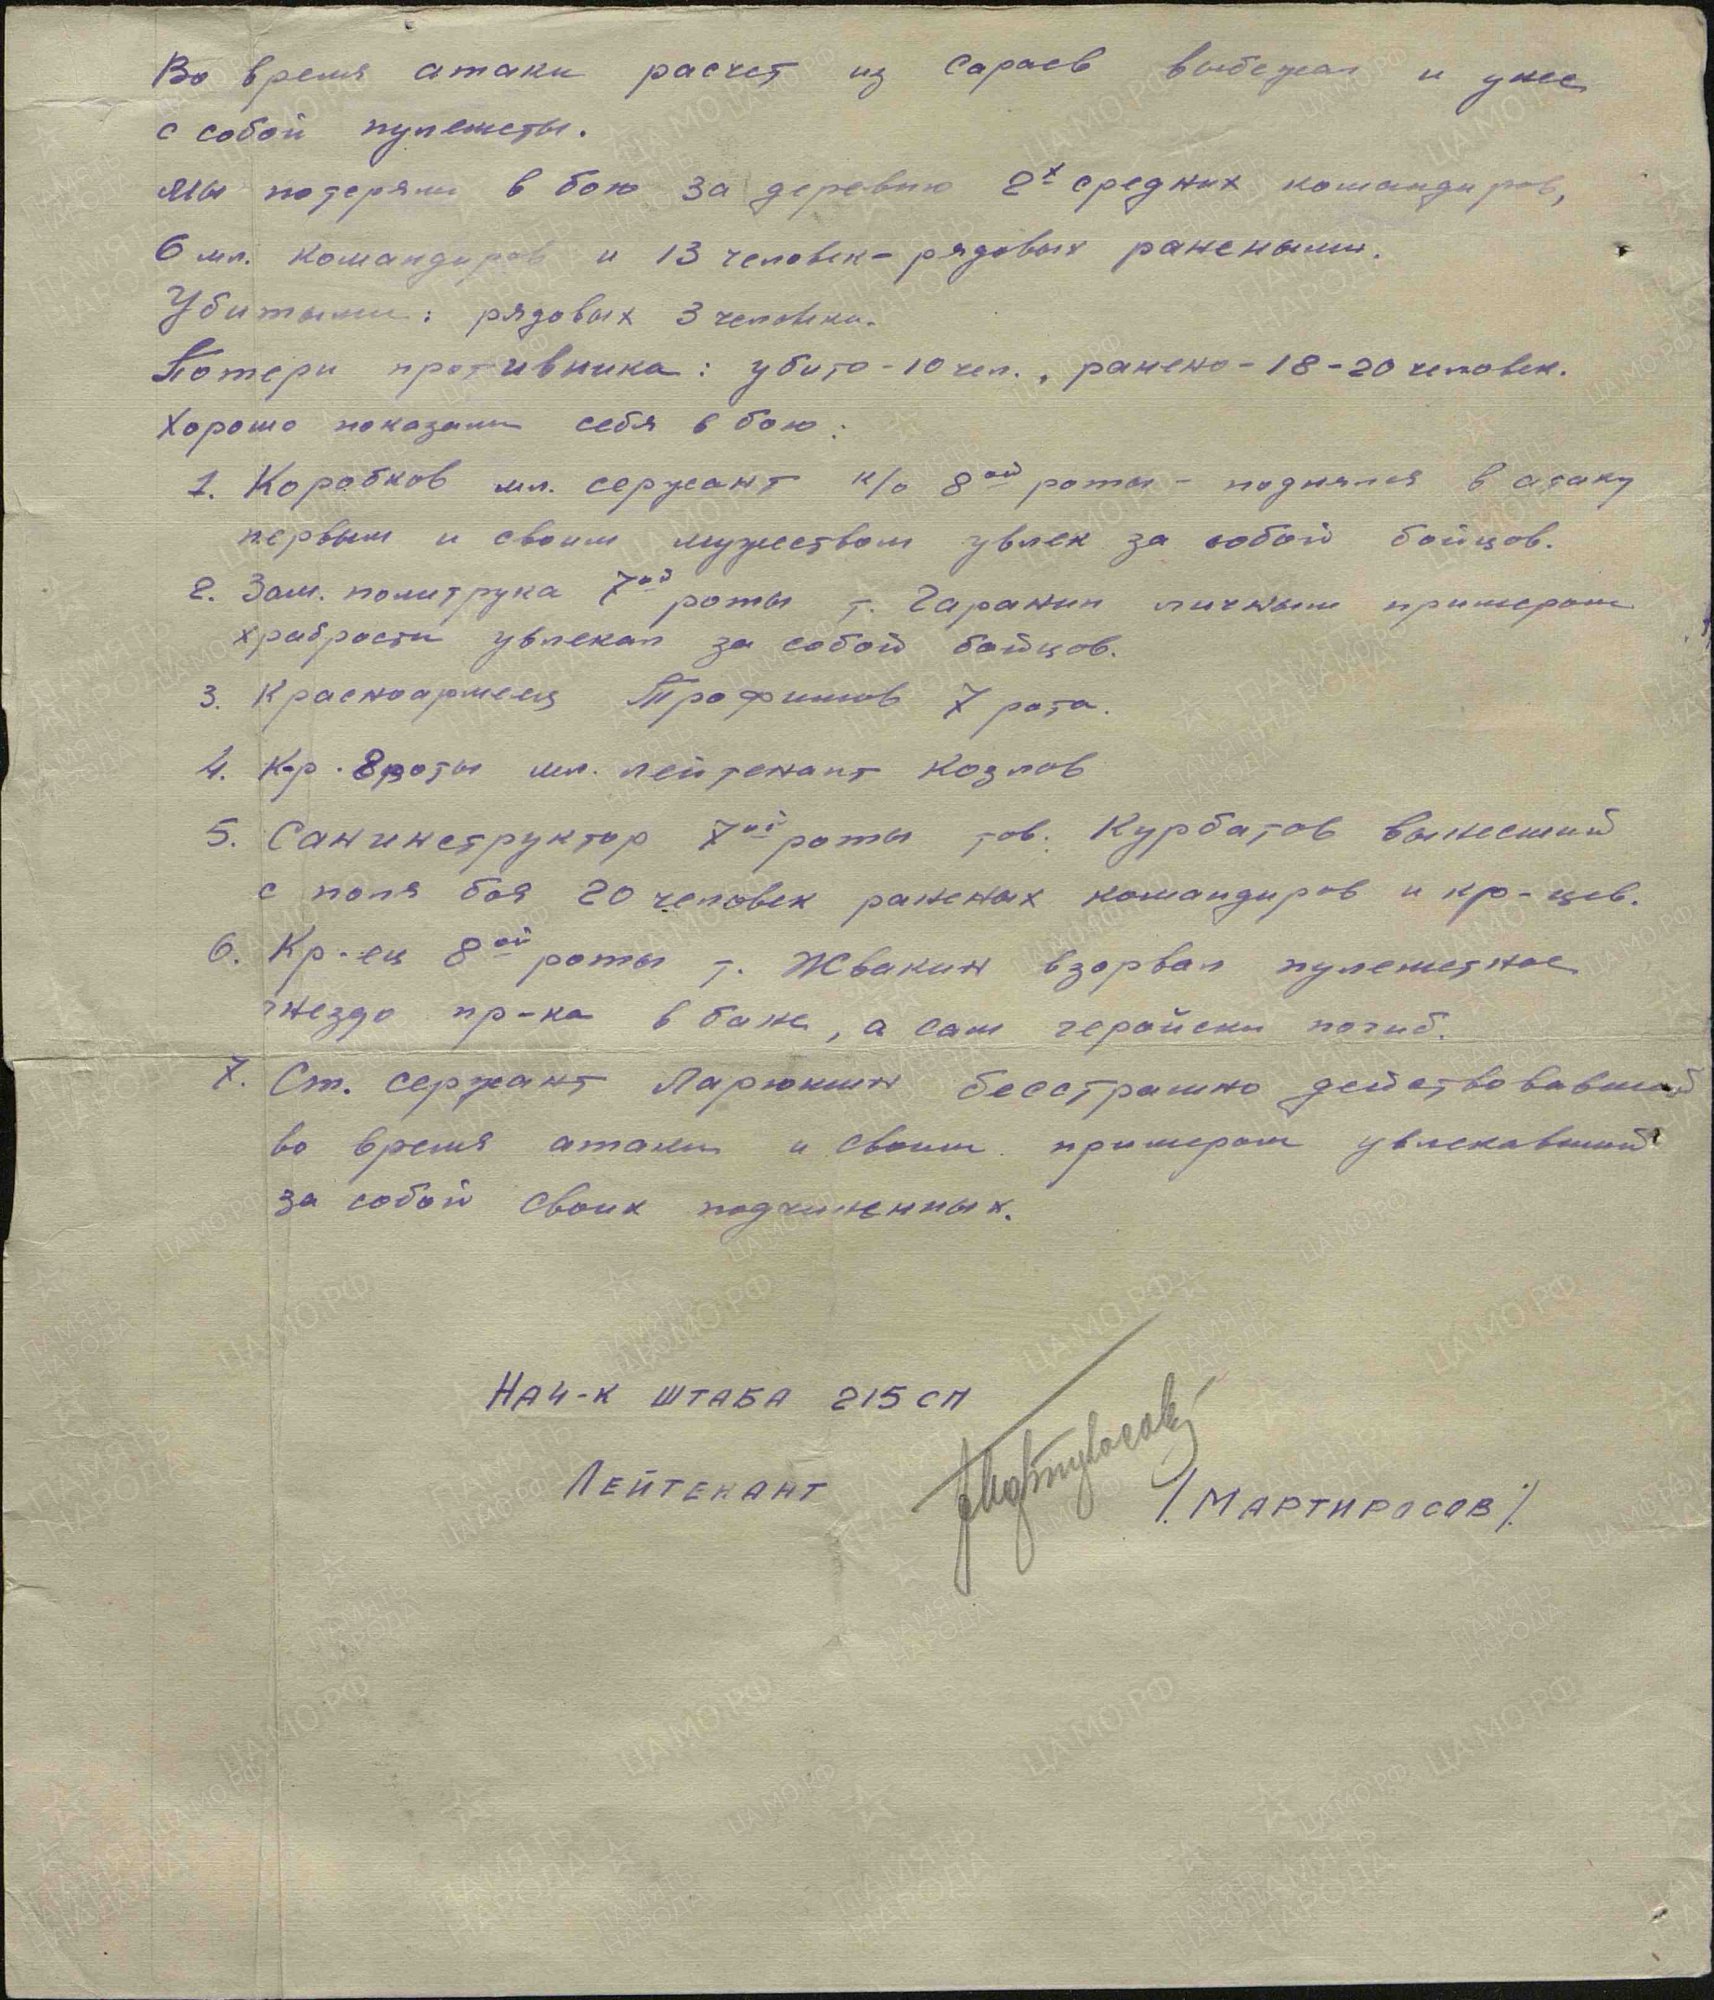 Во время атаки расчет из сараев выбежал и унес
с собой пулеметы.
Мы потеряли в бою за деревню 2х средних командиров,
6 мл. командиров и 13 человек - рядовых ранеными.
Убитыми: рядовых 3 человека.
Потери противника: убито - 10 чел., ранено - 18-20 человек.
Хорошо показали себя в бою:
1. Коробков мл. сержант к/о 8ой роты - поднялся в атаку
первым и своим мужеством увлек за собой бойцов.
2. Зам. политрука 7ой роты т. Гаранин личным примером
храбрости увлекал за собой бойцов.
3. Красноармеец Трофимов 7 рота.
4. К-р. 8 роты мл. лейтенант Козлов
5. Санинструктор 7ой роты тов. Курбатов вынесший
с поля боя 20 человек раненых командиров и кр-цев.
6. Кр-ец 8ой роты т. Жвакин взорвал пулеметное
гнездо пр-ка в бане, а сам геройски погиб.
7. Ст. сержант Ларюшин бесстрашно действовавший
во время атаки и своим примером увлекавший
за собой своих подчиненных.
НАЧ-К ШТАБА 215 СП
ЛЕЙТЕНАНТ /. МАРТИРОСОВ /.
ПАМЯТЬ НАРОДА
ЦАМО.РФ